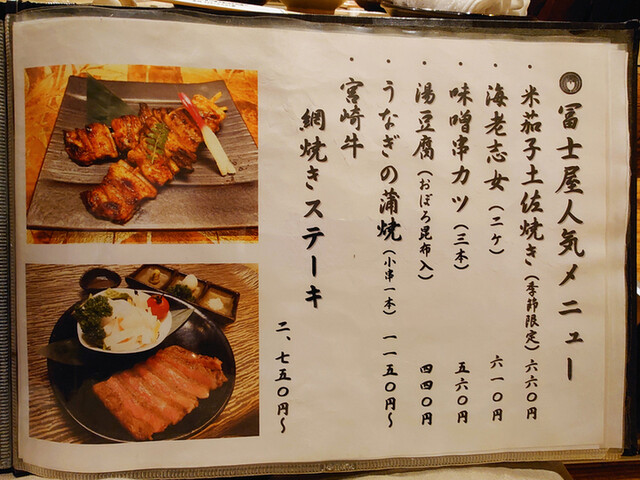 冨士屋人気メニュー
・米茄子土佐焼き(季節限定) 六六〇円
・海老志女(二ケ) 六一〇円
・味噌串カツ(三本) 五六〇円
・湯豆腐(おぼろ昆布入) 四四〇円
・うなぎの蒲焼(小串一本) 一一五〇円〜
・宮崎牛
網焼きステーキ
二、七五〇円〜